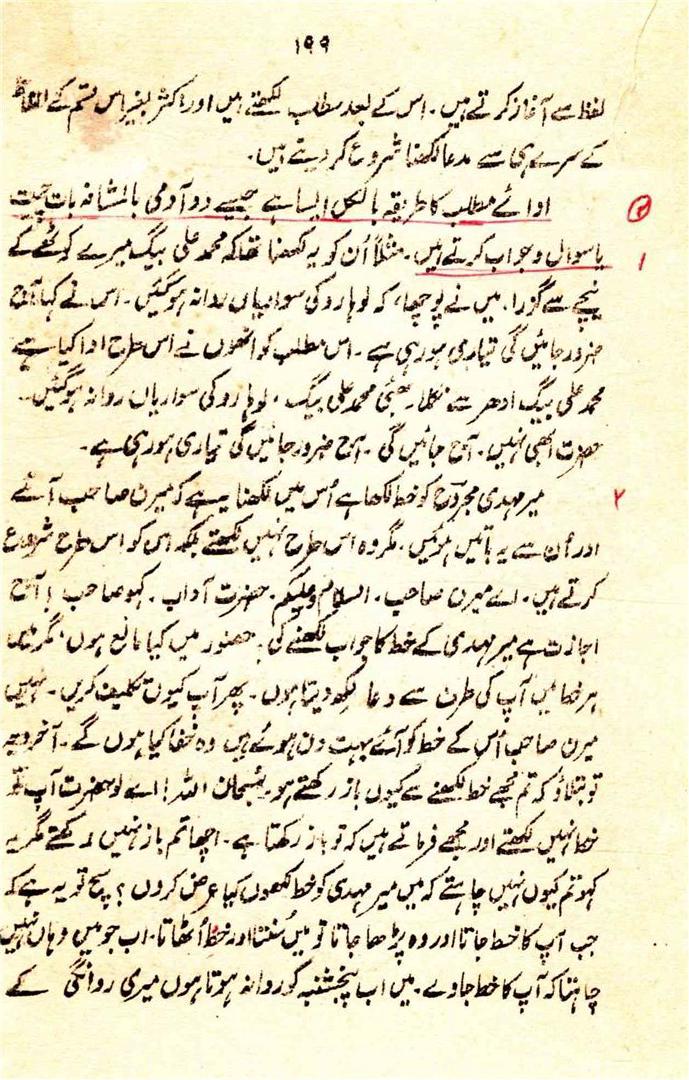 ۱۹۹
لفظ سے آغاز کرتے ہیں۔ اس کے بعد مطلب لکھتے ہیں اور اکثر بغیر اس قسم کے الفاظ
کے سرے ہی سے مدعا لکھنا شروع کر دیتے ہیں۔
ادائے مطلب کا طریقہ بالکل ایسا ہے جیسے دو آدمی بالمشافہ بات چیت
۱ یا سوال و جواب کرتے ہیں۔ مثلاً اُن کو یہ لکھنا تھا کہ محمد علی بیگ میرے کوٹھے کے
نیچے سے گزرا۔ میں نے پوچھا، کہ لوہارو کی سواریاں روانہ ہو گئیں۔ اس نے کہا آج
ضرور جائیں گی تیاری ہو رہی ہے۔ اس مطلب کو انھوں نے اس طرح ادا کیا ہے
محمد علی بیگ ادھر سے نکلا۔ بھئی محمد علی بیگ، لوہارو کی سواریاں روانہ ہو گئیں۔
حضرت ابھی نہیں۔ آج جائیں گی۔ آج ضرور جائیں گی تیاری ہو رہی ہے۔
۲ میر مہدی مجروح کو خط لکھا ہے اُس میں لکھنا یہ ہے کہ میرن صاحب آئے
اور اُن سے یہ باتیں ہوئیں۔ مگر وہ اس طرح نہیں لکھتے بلکہ اس کو اس طرح شروع
کرتے ہیں۔ اے میرن صاحب۔ السلام علیکم۔ حضرت آداب۔ کہو صاحب! آج
اجازت ہے میر مہدی کے خط کا جواب لکھنے کی۔ حضور میں کیا مانع ہوں، مگر میں
ہر خط میں آپ کی طرف سے دعا لکھ دیتا ہوں۔ پھر آپ کیوں تکلیف کریں۔ نہیں
میرن صاحب اُس کے خط کو آئے بہت دن ہوئے ہیں وہ خفا کیا ہوں گے۔ آخر وجہ
تو بتلاؤ کہ تم مجھے خط لکھنے سے کیوں باز رکھتے ہو۔ سُبحان اللہ! اے لو حضرت آپ تو
خط نہیں لکھتے اور مجھے فرماتے ہیں کہ تو باز رکھتا ہے۔ اچھا تم باز نہیں رکھتے مگر یہ
کہو تم کیوں نہیں چاہتے کہ میں میر مہدی کو خط لکھوں کیا عرض کروں؟ سچ تو یہ ہے کہ
جب آپ کا خط جاتا اور وہ پڑھا جاتا تو میں سُنتا اور حظ اُٹھاتا۔ اب جو میں وہاں نہیں
چاہتا کہ آپ کا خط جاوے۔ میں اب پنجشنبہ کو روانہ ہوتا ہوں میری روانگی کے